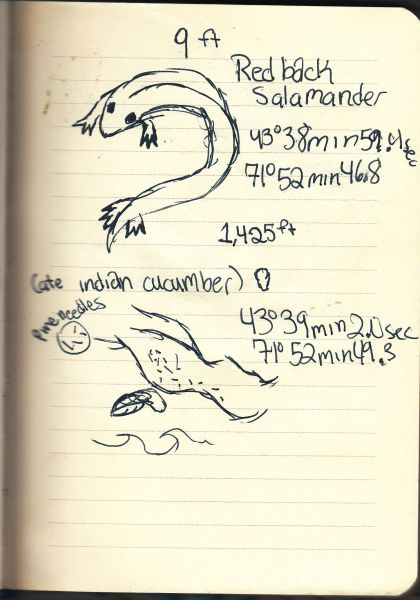 9 ft
Redback
Salamander
43°38min59.4sec
71°52min46.8
1,425ft
(ate indian cucumber)
Pine needles
43°39min2.0sec
71°52min49.3